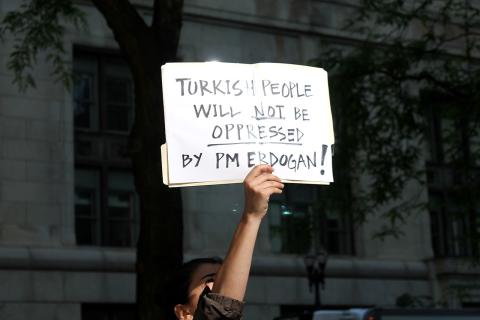 TURKISH PEOPLE
WILL NOT BE
OPPRESSED
BY PM ERDOGAN!